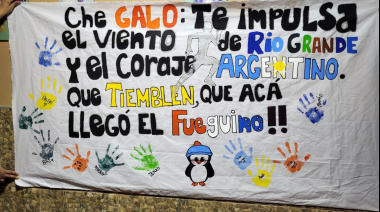 Che GALO: Te impulsa
el viento de Rio Grande
y el coraje ARGENTINO.
que TIEMBLEN, que ACÁ
llegó el Fueguino!!